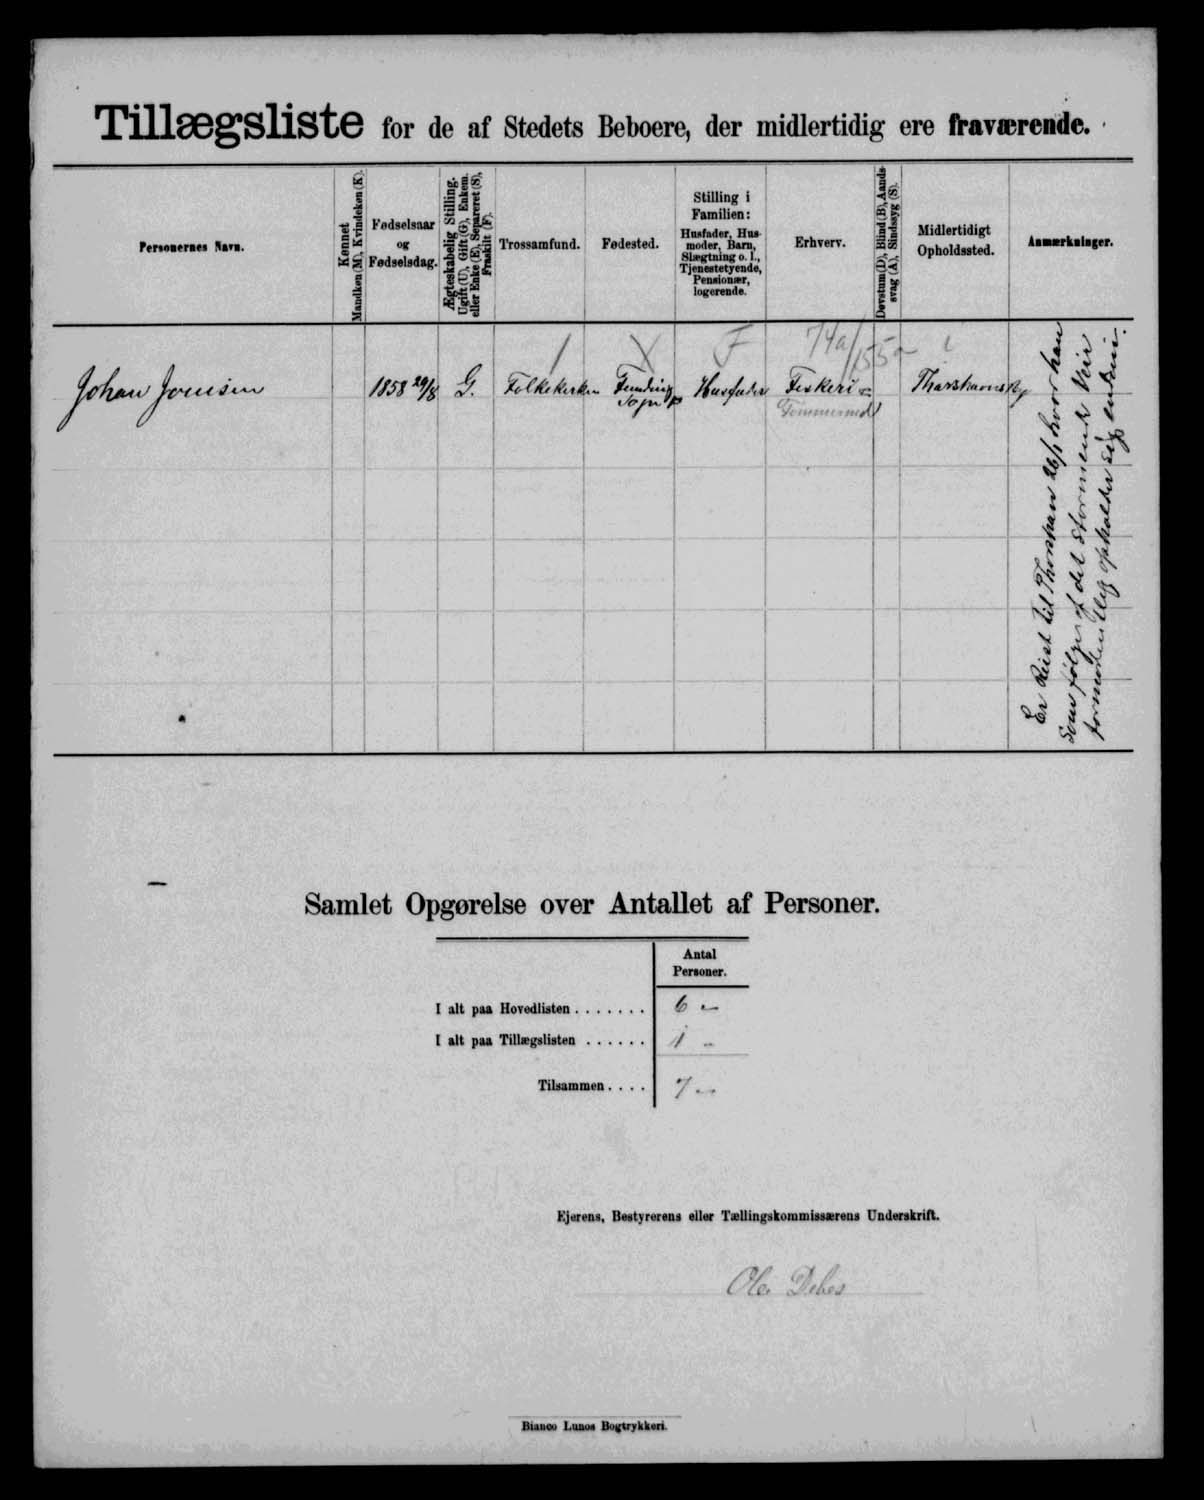 Tillægsliste for de af Stedets Beboere, der midlertidig ere fraværende.
Personernes Navn.
Kønnet
Mandkøn (M), Kvindekøn (K).
Fødselsaar
og
Fødselsdag.
Ægteskabelig Stilling.
Ugift (U), Gift (G), Enkem.
eller Enke (E), Separeret (S),
Fraskilt (F).
Trossamfund.
Fødested.
Stilling i
Familien:
Husfader, Hus-
moder, Barn,
Slægtning o. l.,
Tjenestetyende,
Pensionær,
logerende.
Erhverv.
Døvstum (D), Blind (B), Aands-
svag (A), Sindssyg (S).
Midlertidigt
Opholdssted.
Anmærkninger.
F 74a/155a
Johan Jensen 1858 29/8 G. Folkekirken Funding Sogn Husfader Fiskeri Tømmermd Thorshavns By
Er Reist til Thorshavn 26/1 hvor han
Som følge af det stormende Veir
formodentlig opholder sig endnu.
Samlet Opgørelse over Antallet af Personer.
Antal
Personer.
I alt paa Hovedlisten . . . . . . . 6
I alt paa Tillægslisten . . . . . . 1
Tilsammen . . . . 7
Ejerens, Bestyrerens eller Tællingskommissærens Underskrift.
Ole Debes
Bianco Lunos Bogtrykkeri.